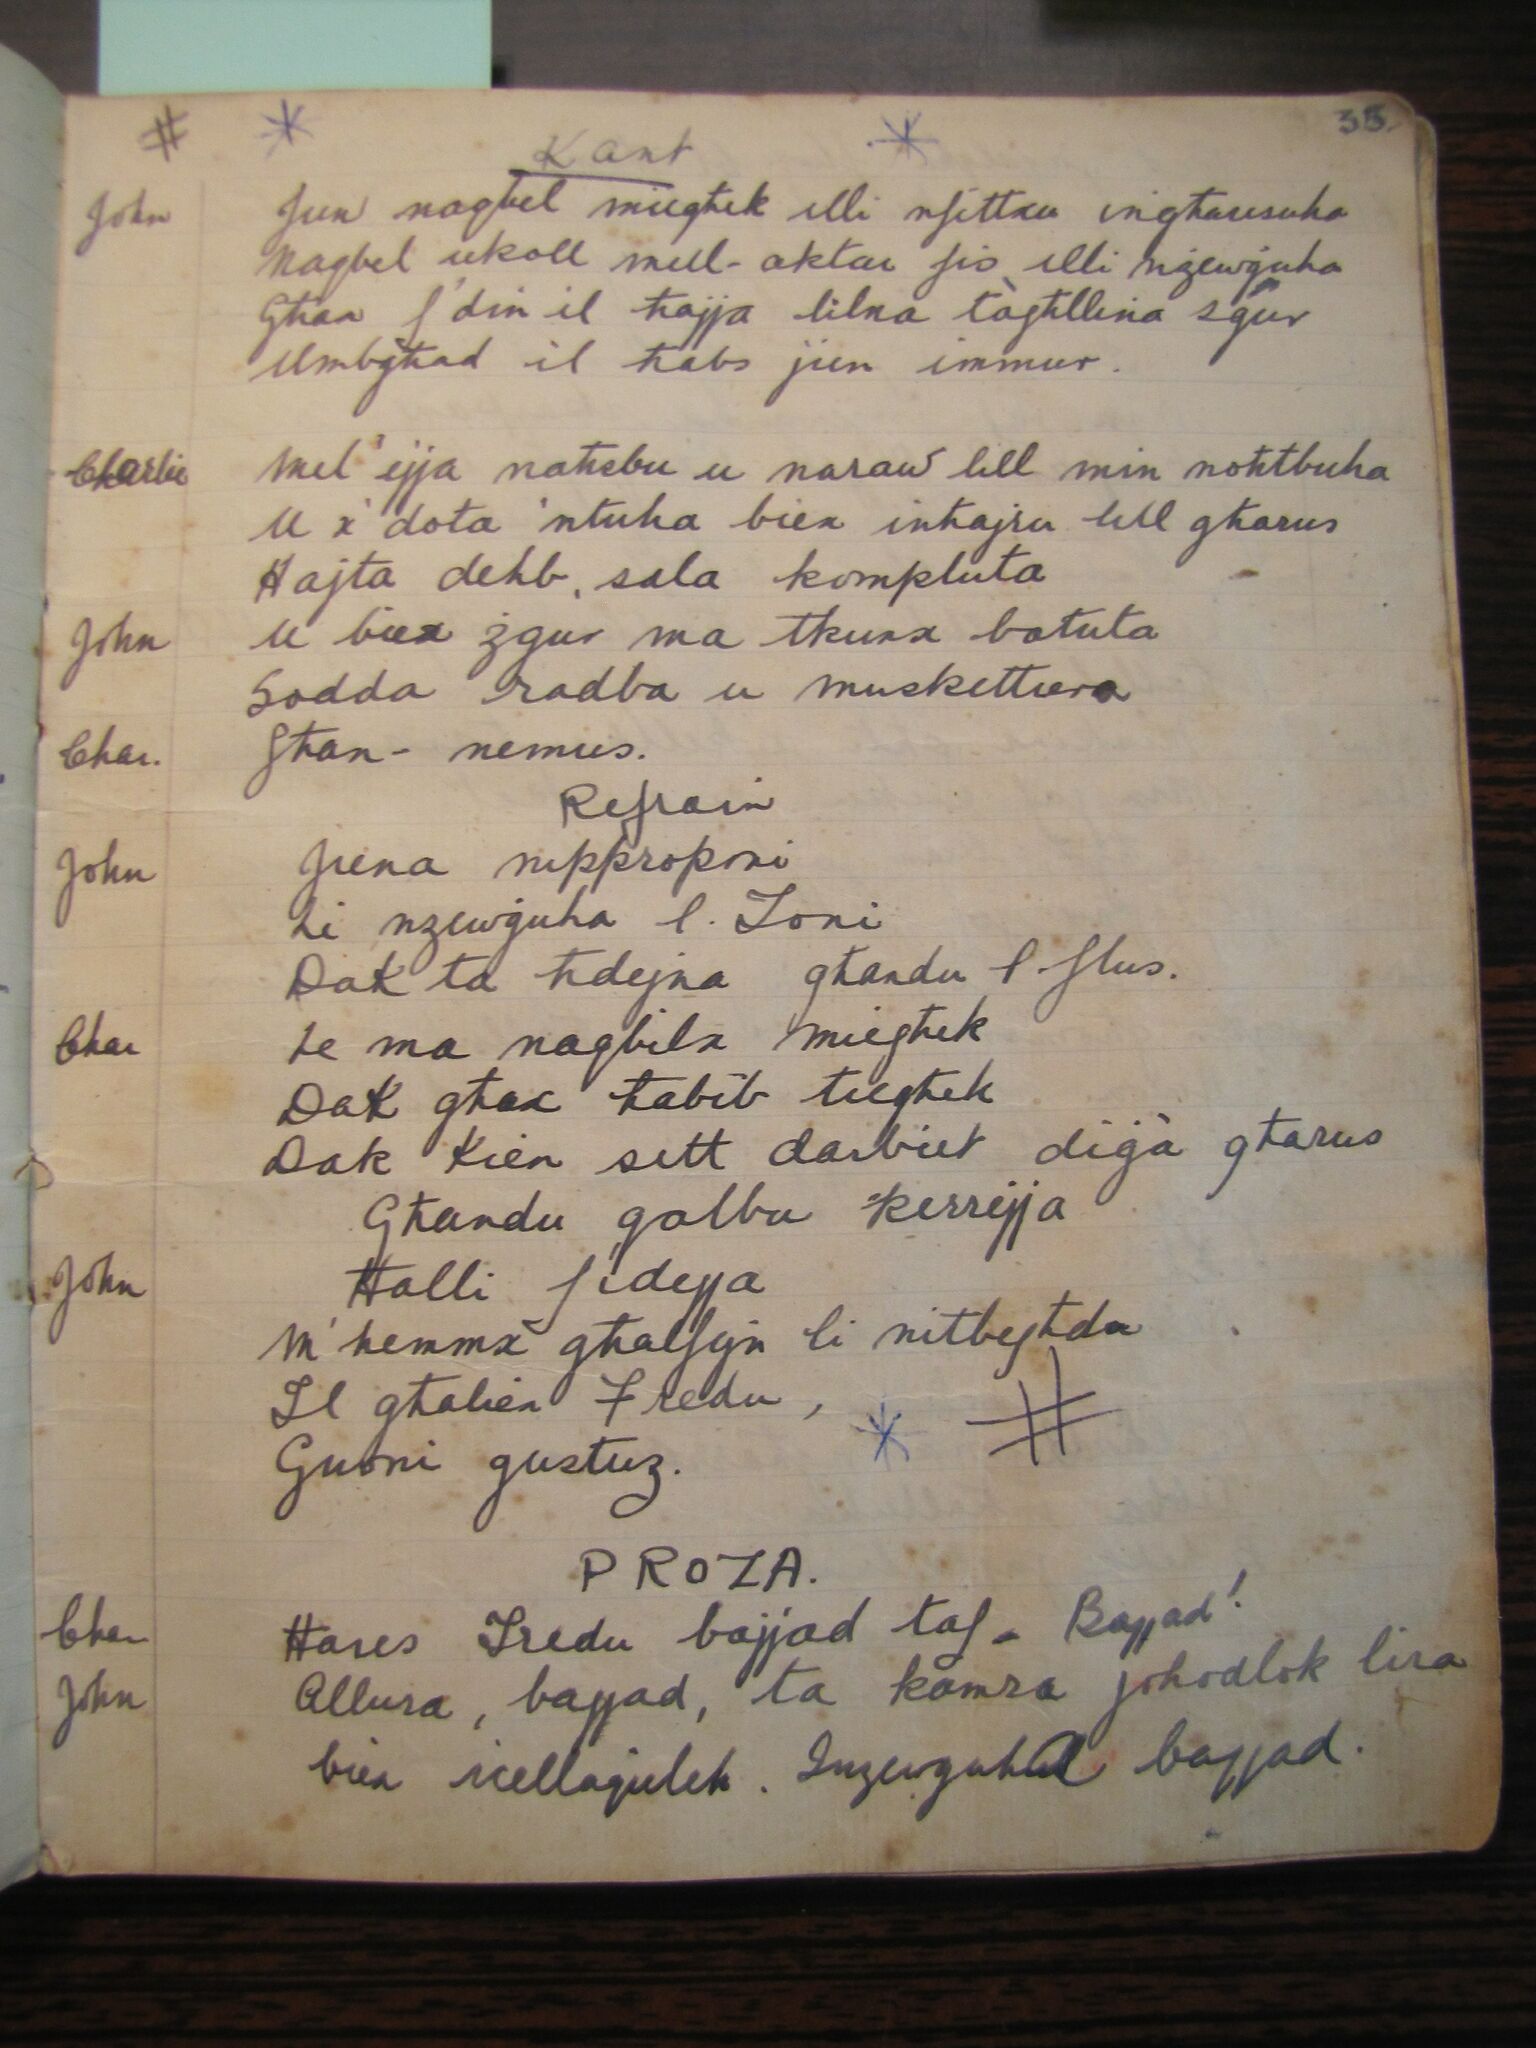 35.
# * Kant *
John Jien naqbel miegħek illi nfittxu ingħarusuha
Naqbel ukoll mill-aktar fis illi nżewġuha
Għax f'din il ħajja lilna tagħllina sgur
Umbgħad il ħabs jien immur.
Charlie Mel' ejja naħsbu u naraw lill min noħtbuha
U x' dota 'ntuha biex inħajru lill għarus
Ħajta deheb, sala kompluta
John U biex żgur ma tkunx batuta
Sodda radba u muskettiera
Char. Għan-nemus.
Refrain
John Jiena nipproponi
Li nżewġuha l. Toni
Dak ta ħdejna għandu l-flus.
Char Le ma naqbilx miegħek
Dak għax ħabib tiegħek
Dak kien sitt darbiet diġà għarus
Għandu qalbu kerrejja
John Ħalli f'idejja
M'hemmx għalfejn li nitbegħdu
Il għaliex Fredu,
Guoni gustuż.
* #
PROZA.
Char Ħares Fredu bajjad taf - Bajjad!
John Allura, bajjad, ta kamra joħodlok lira
biex icellaqulek. Inżewġuha bajjad.